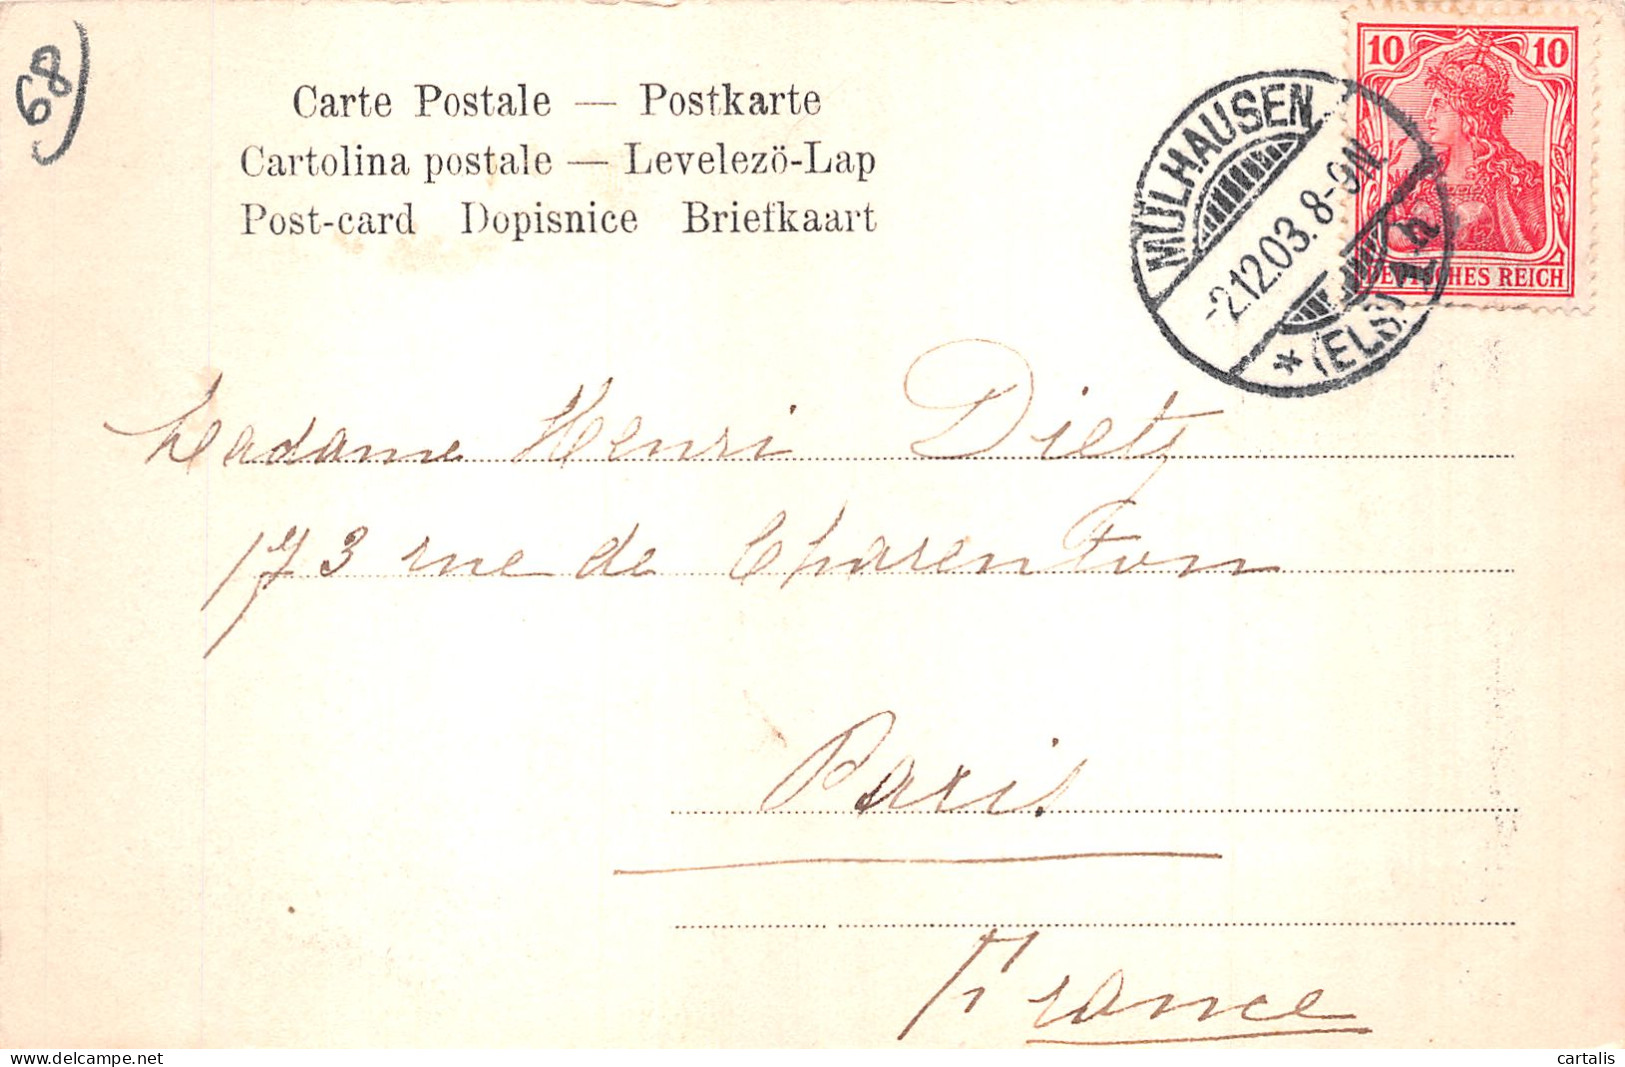 68
Carte Postale — Postkarte
Cartolina postale — Levelezö-Lap
Post-card Dopisnice Briefkaart
10 10
DEUTSCHES REICH
MÜLHAUSEN
-2.12.03. 8-9N.
* (ELS) 1 h
Madame Henri Dietz
173 rue de Charenton
Paris.
France
cartalis